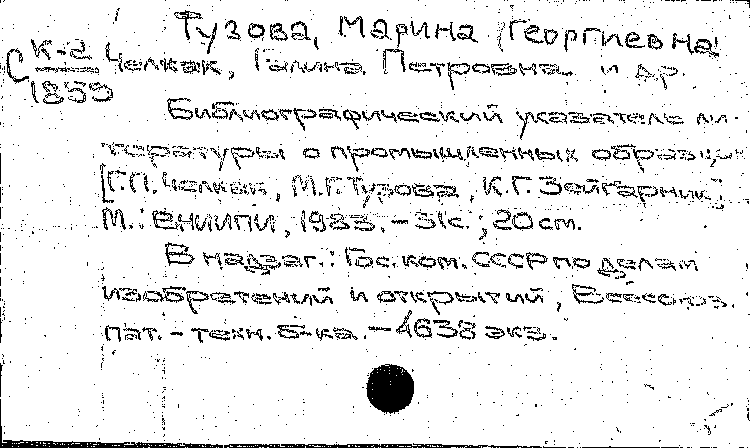 Тузова, Марина Георгиевна
С К-2 Челкак, Галина Петровна и др.
1859
Библиографический указатель ли-
тературы о промышленных образцах
[Г.П. Челкак, М.Г. Тузова, К.Г. Зейгарник].
М.: ВНИИПИ, 1983. - 31с.; 20 см.
В надзаг.: Гос. ком. СССР по делам
изобретений и открытий, Всесоюз.
пат. - техн. б-ка. - 4638 экз.